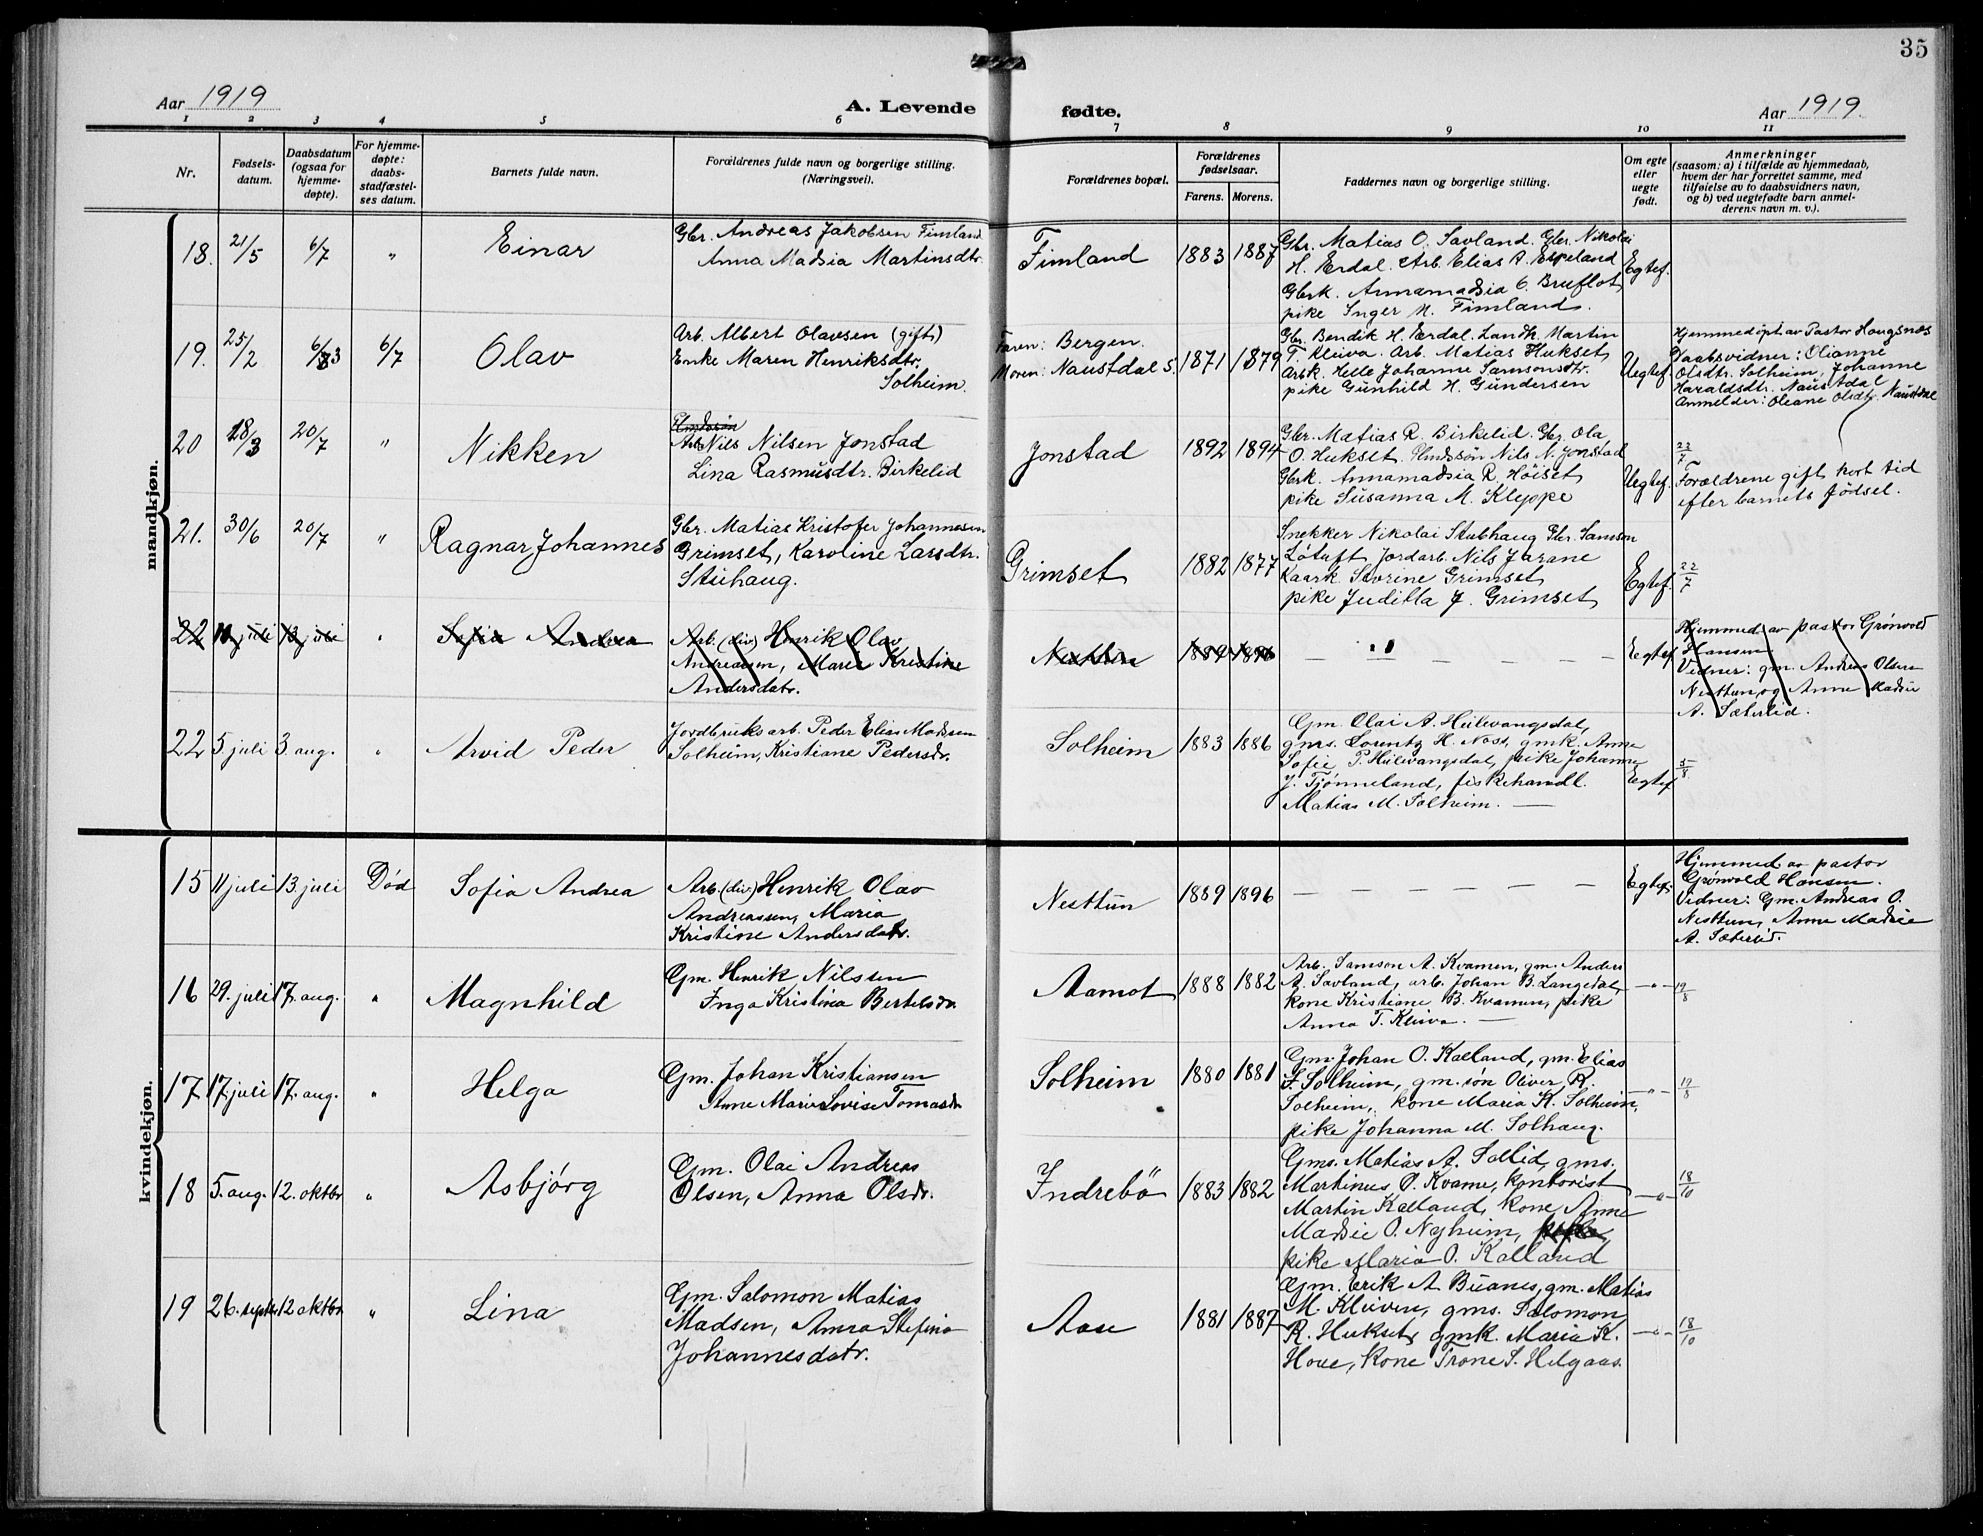 35
Aar 1919
A. Levende fødte.
Aar 1919.
1 2 3 4 5 6 7 8 9 10 11
Nr.
Fødsels-
datum.
Daabsdatum
(ogsaa for
hjemme-
døpte).
For hjemme-
døpte:
daabs-
stadfæstel-
ses datum.
Barnets fulde navn.
Forældrenes fulde navn og borgerlige stilling.
(Næringsvei).
Forældrenes bopæl.
Forældrenes
fødselsaar.
Farens. Morens.
Faddernes navn og borgerlige stilling.
Om egte
eller
uegte
født.
Anmerkninger
(saasom: a) i tilfælde av hjemmedaab,
hvem der har forrettet samme, med
tilføielse av to daabsvidners navn,
og b) ved uegtefødte barn anmel-
derens navn m. v.).
mandkjøn.
18. 21/5 6/7 " Einar
Gbr. Andreas Jakobsen Fimland
Anna Madsia Martinsdtr.
Fimland 1883 1887
Gbr. Matias O. Savland. Gbr. Nikolai
H. Erdal. Arb. Elias A. Espeland
Gbrk. Annamadsia O. Bruflot,
pike Inger M. Fimland.
Egtef.
19. 25/2 6/3 6/7 Olav
Arb. Albert Olavsen (gift)
Enke Maren Henriksdtr.
Solheim.
Faren: Bergen.
Moren: Naustdal S. 1871 1879
Gbr. Bendik H. Erdal. Landh. Martin
T. Kleiva. Arb. Matias Hukset,
Arbk. Helle Johanne Samsonsdtr.
pike Gunhild H. Gundersen
Uegtef.
Hjemmedøpt av Pastor Hougsnæs
Daabsvidner: Olianne
Olsdtr. Solheim, Johanne
Haraldsdtr. Naustdal
Anmelder: Oleane Olsdtr. Naustdal
20 18/3 20/7 " Nikken
Arb. Nils Nilsen Jonstad
Lina Rasmusdtr. Birkelid
Jonstad 1892 1894
Gbr. Matias R. Birkelid. Gbr. Ola
O. Hukset. Nils N. Jonstad
Gbrk. Annamadsia R. Höiset
pike Susanna M. Kleppe
Uegtef.
22/7
Forældrene gift kort tid
efter barnets fødsel.
21. 30/6 20/7 " Ragnar Johannes
Gbr. Matias Kristofer Johannesen
Grimset, Karoline Larsdtr.
Stuhaug.
Grimset 1882 1877
Snekker Nikolai Stubhaug Gbr. Samson
Løtuft Jordarb. Nils Jarane
Kaark Sevrine Grimset
pike Juditta J. Grimset
Egtef. 22/7
22 11 juli 13 juli " Sofia Andrea
Arb. (div) Henrik Olav
Andreassen, Maria Kristine
Andersdatr.
Nesttun 1889 1896
— " — — — — —
Eegtef
Hjemmed. av pastor Grønvold
Hansen
Vidner: gm. Andreas Olsen
Nesttun, og Anne Madsie
A. Sæterlid.
22 5 juli 3. aug. " Arvid Peder
Jordbruksarb. Peder Elias Madsen
Solheim, Kristiane Pedersdr.
Solheim 1883 1886
Gm. Olai A. Heilevangsdal,
gms. Lorentz H. Nass, gmk. Anne
Sofie P. Heilevangsdal, pike Johanne
J. Tjønneland, fiskehandl.
Matias M. Solheim. —
Eegtef 5/8
kvindekjøn.
15 11 juli 13. juli Död Sofia Andrea
Arb. (div) Henrik Olav
Andreassen, Maria
Kristine Andersdatr.
Nesttun 1889 1896
— — — — — —
Egtef.
Hjemmed. av pastor
Grønvold Hansen.
Vidner: Gm. Andreas O.
Nesttun, Anne Madsie
A. Sæterlid.
16 29. juli 17. aug. " Magnhild
Gm. Henrik Nilsen
Inga Kristina Bertelsdr.
Aamot 1888 1882
Arb. Samson A. Kvamen, gm. Anders
A. Savland, arb. Johan B. Langedal,
kone Kristiane B. Kvamen, pike
Anna T. Kleiva. —
—"— 19/8
17 17. juli 17. aug. " Helga
Gm. Johan Kristiansen
Anne Marie Lovise Tomasdr.
Solheim 1880 1881
Gm. Johan O. Kalland, gm. Elias
J. Solheim, gm. søn Oliver R.
Solheim, kone Maria K. Solheim,
pike Johanna M. Solhaug.
—"— 19/8
18 5. aug. 12. oktbr " Asbjørg
Gm. Olai Andreas
Olsen, Anna Olsdr.
Indrebö 1883 1882
Gms. Matias A. Sollid, gms.
Martinus O. Kvame, kontorist
Martin Kalland, kone Anne
Madsie O. Nyheim, pike
pike Maria O. Kalland
—"— 18/10
19 26. septbr. 12 oktbr " Lina
Gm. Salomon Matias
Madsen, Anna Stefina
Johannesdatr.
Aase 1881 1887
Gm. Erik A. Buanes, gm. Matias
M. Kleiven, gms. Salomon
R. Hukset, gmk. Maria K.
Hove, kone Trone S. Helgaas.
—"— 18/10